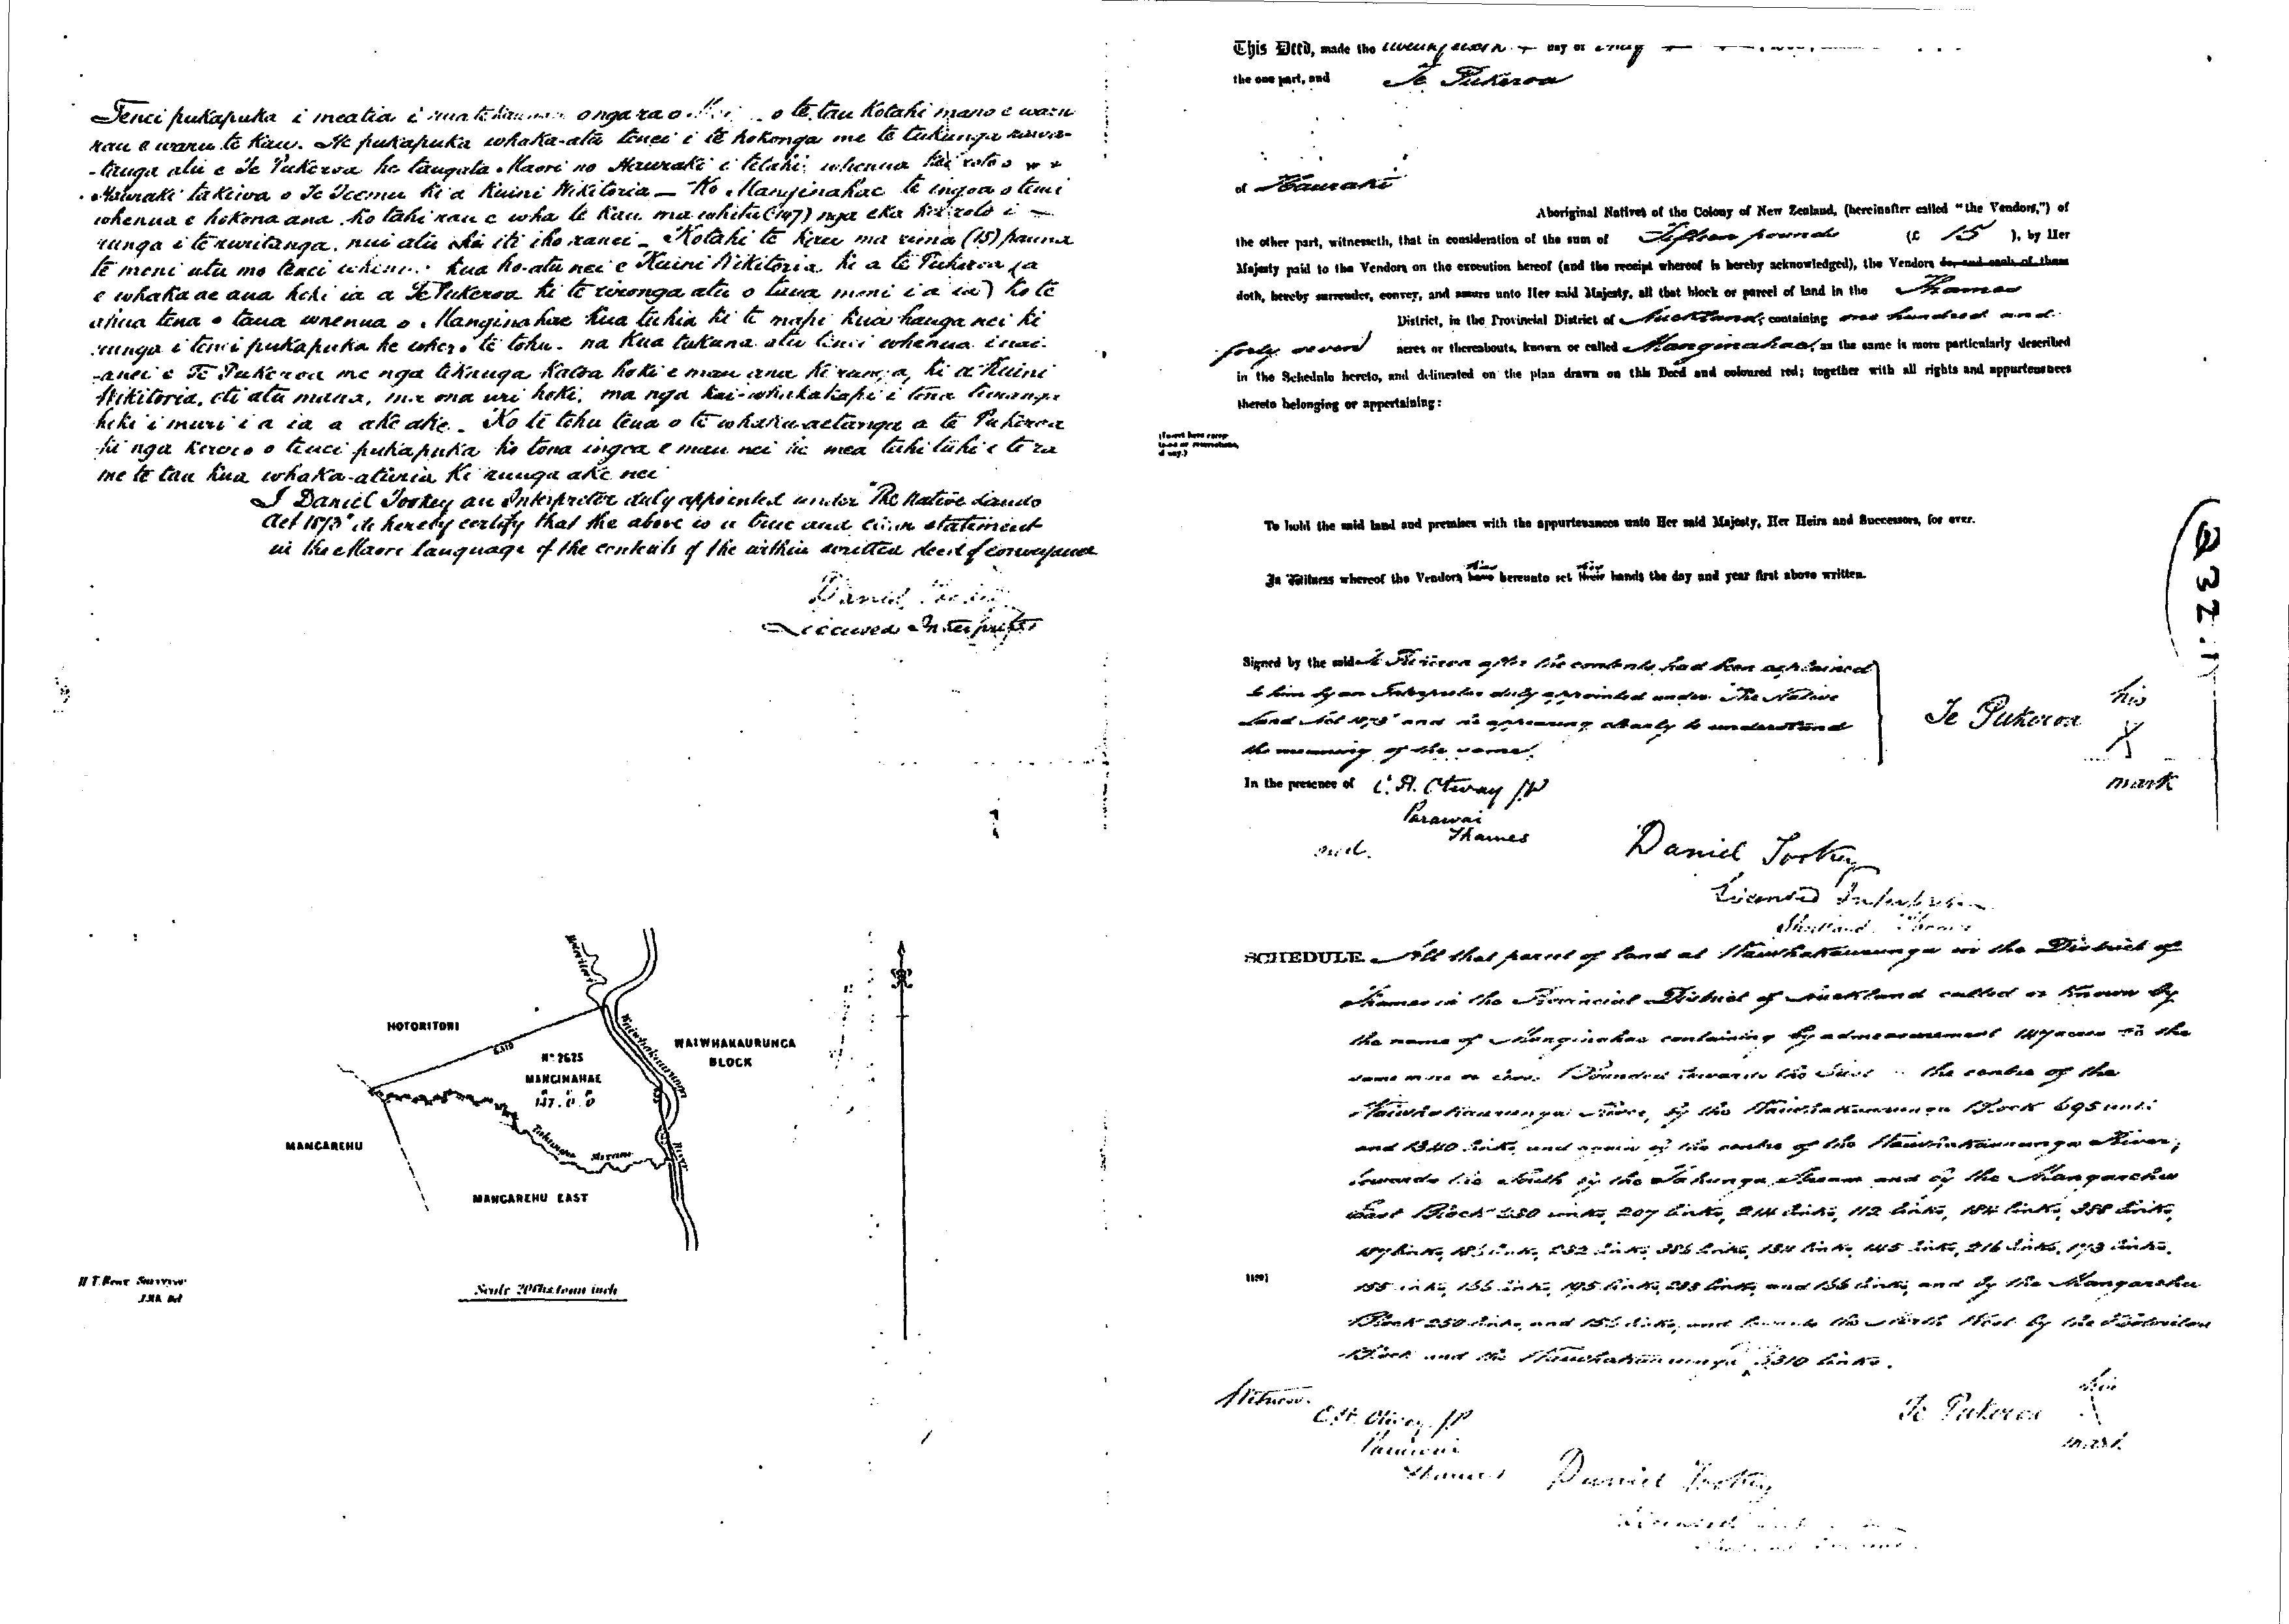 Tenei pukapuka i meatia i o nga ra o Mei o te tau Kotahi mano e waru
rau e waru te kau. He pukapuka whaka-atu tenei i te hokonga me te tukunga rawa-
-tanga atu e Te Pukeroa he tangata Maori no Hauraki i tetahi whenua kei roto o
Hauraki takiwa o Te Teemu ki a Kuini Wikitoria — Ko Manginahae te ingoa o tenei
whenua e hokona ana. Ko tahi rau e wha te kau ma whitu (147) nga eka kei roto i —
runga i te ruritanga, nui atu iti iho ranei — Kotahi te kau ma rima (15) pauna
te moni utu mo tenei whenua kua ho-atu nei e Kuini Wikitoria ki a te Pukeroa (a
e whaka ae ana hoki ia a Te Pukeroa ki te rironga atu o taua moni i a ia) ko te
ahua tena o taua whenua o Manginahae kua tuhia ki te mapi kua hanga nei ki
runga i tenei pukapuka he whero te tohu. na Kua tukuna atu tenei whenua inai-
-anei e Te Pukeroa me nga tikanga katoa hoki e mau ana ki runga, ki a Kuini
Wikitoria, oti atu mana, ma ona uri hoki, ma nga kai-whakakapi i tona turanga
hoki i muri i a ia a ake ake. Ko te tohu tena o te whaka-aetanga a te Pukeroa
ki nga korero o tenei pukapuka ko tona ingoa e mau nei he mea tuhituhi i te ra
me te tau kua whaka-aturia ki runga ake nei
I Daniel Tookey an Interpreter duly appointed under "The Native Lands
Act 1873" do hereby certify that the above is a true and statement
in the Maori language of the contents of the within written deed of conveyance
Daniel Tookey
Licensed Interpreter
HOTORITORI
6310
Waiwhakaurunga
WAIWHAKAURUNGA
BLOCK
No. 2625
MANGINAHAE
A R P
147. 0. 0
MANGAREHU
Tahunga Stream
River
MANGAREHU EAST
Surveyor
Scale 20 Chs. to an inch
This Deed, made the day of May
the one part, and Te Pukeroa
of Hauraki
Aboriginal Natives of the Colony of New Zealand, (hereinafter called "the Vendors,") of
the other part, witnesseth, that in consideration of the sum of Fifteen pounds (£ 15 ), by Her
Majesty paid to the Vendors on the execution hereof (and the receipt whereof is hereby acknowledged), the Vendors do, and each of them
doth, hereby surrender, convey, and assure unto Her said Majesty, all that block or parcel of land in the Thames
District, in the Provincial District of Auckland, containing one hundred and
forty seven acres or thereabouts, known or called Manginahae, as the same is more particularly described
in the Schedule hereto, and delineated on the plan drawn on this Deed and coloured red; together with all rights and appurtenances
thereto belonging or appertaining:
To hold the said land and premises with the appurtenances unto Her said Majesty, Her Heirs and Successors, for ever.
In Witness whereof the Vendors have hereunto set their hands the day and year first above written.
Signed by the said Te Pukeroa after the contents had been explained
to him by an Interpreter duly appointed under "The Native
Land Act 1873" and he appearing clearly to understand
the meaning of the same
Te Pukeroa his
X
mark
In the presence of C. H. Otway J.P.
Parawai
Thames
and
Daniel Tookey
Licensed Interpreter
Shortland Thames
SCHEDULE. All that parcel of land at Waiwhakaurunga in the District of
Thames in the Provincial District of Auckland called or known by
the name of Manginahae containing by admeasurement 147 acres be the
same more or less. Bounded towards the East the centre of the
Waiwhakaurunga River, by the Waiwhakaurunga Block 695 links
and 1340 links and again by the centre of the Waiwhakaurunga River;
towards the South by the Tahunga Stream and by the Mangarehu
East Block 230 links, 207 links, 214 links, 112 links, 184 links, 388 links,
links, links, 232 links, 386 links, 134 links, 145 links, 216 links, 173 links,
155 links, 166 links, 195 links, 283 links and 166 links, and by the Mangarehu
Block 250 links and links, and towards the North West by the Hotoritori
Block and the Waiwhakaurunga 6310 links.
Witness.
C. H. Otway J.P.
Parawai
Thames
Daniel Tookey
Te Pukeroa his
X
mark